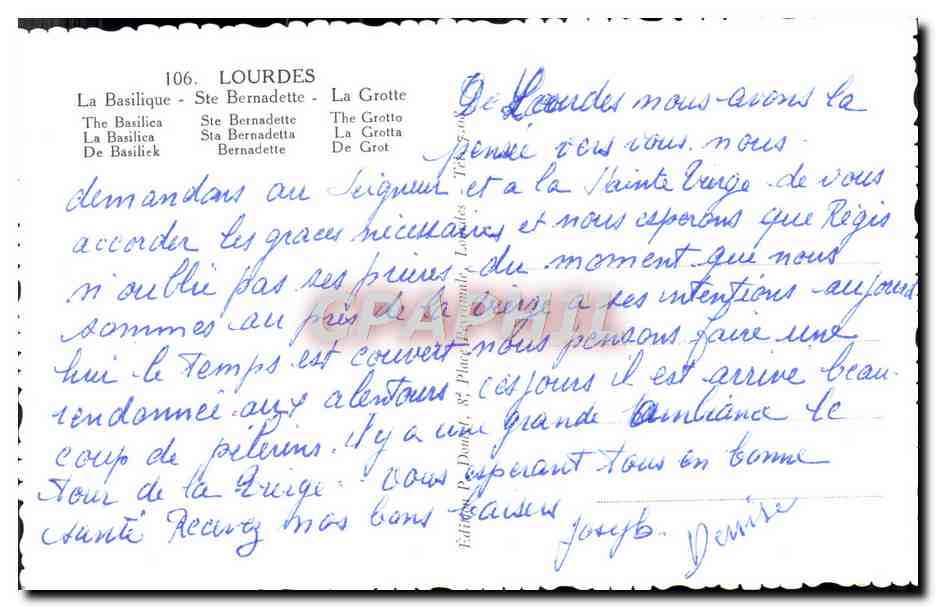 106. LOURDES
La Basilique - Ste Bernadette - La Grotte
The Basilica Ste Bernadette The Grotto
La Basilica Sta Bernadetta La Grotta
De Basiliek Bernadette De Grot
De Lourdes nous avons la
pensée vers vous. nous
demandons au Seigneur et a la Sainte Vierge de vous
accorder les graces nécessaires et nous esperons que Régis
n'oublie pas ses prieres du moment que nous
sommes au près de la vierge a ses intentions aujourd
hui le temps est couvert nous pensons faire une
randonnée aux alentours ces jours il est arrivé beau-
coup de pélerins. il y a une grande ambiance le
tour de la Vierge. Vous esperant tous en bonne
santé Recevez nos bons baisers
Joseph. Denise
Edition P. Doucet, 8, Place Peyramale, Lourdes
CPAPHIL